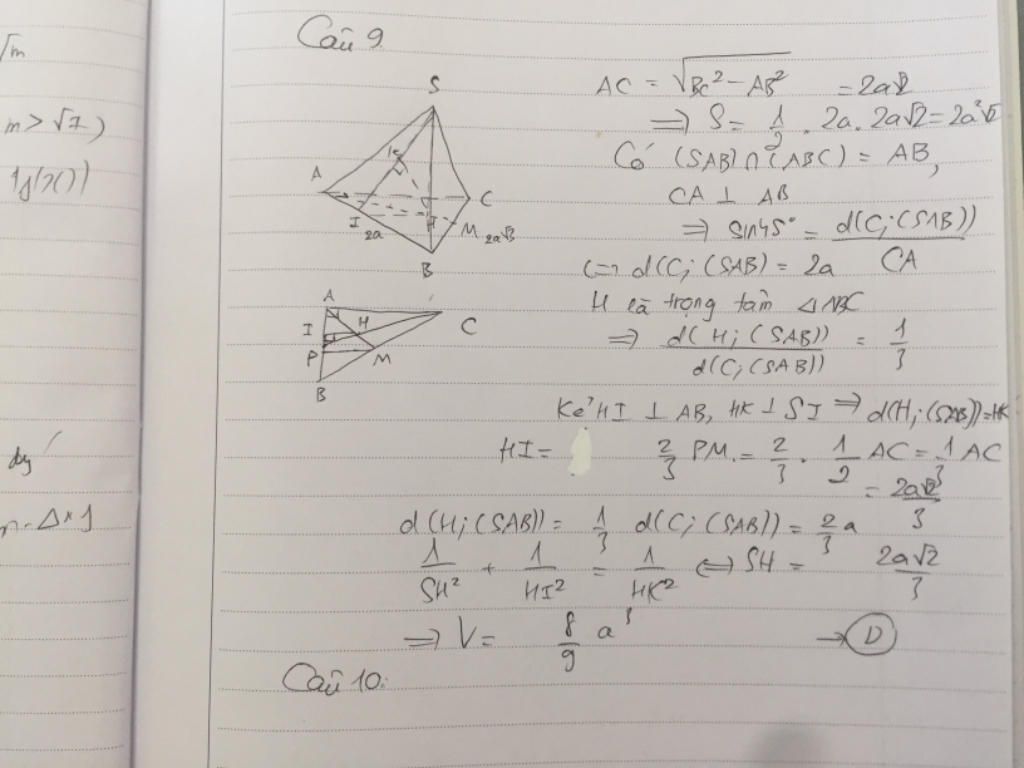 √m
m > √7)
Câu 9
S
K
A
C
I
H
2a
M
2a√3
B
A
I
H
C
P
M
B
AC = √BC² − AB² = 2a√2
⇒ S = 1/2 . 2a . 2a√2 = 2a²√2
Có (SAB)∩(ABC) = AB,
CA ⊥ AB
⇒ sin45° = d(C;(SAB))/CA
⇔ d(C;(SAB) = 2a
H là trọng tâm △ABC
⇒ d(H;(SAB))/d(C;(SAB)) = 1/3
Kẻ HI ⊥ AB, HK ⊥ SI ⇒ d(H;(SAB))=HK
HI = 2/3 PM. = 2/3 . 1/2 AC = 1/3 AC
= 2a√2/3
d(H;(SAB)) = 1/3 d(C;(SAB)) = 2/3 a
1/SH² + 1/HI² = 1/HK² ⇔ SH = 2a√2/3
⇒ V = 8/9 a³ → D
Câu 10: